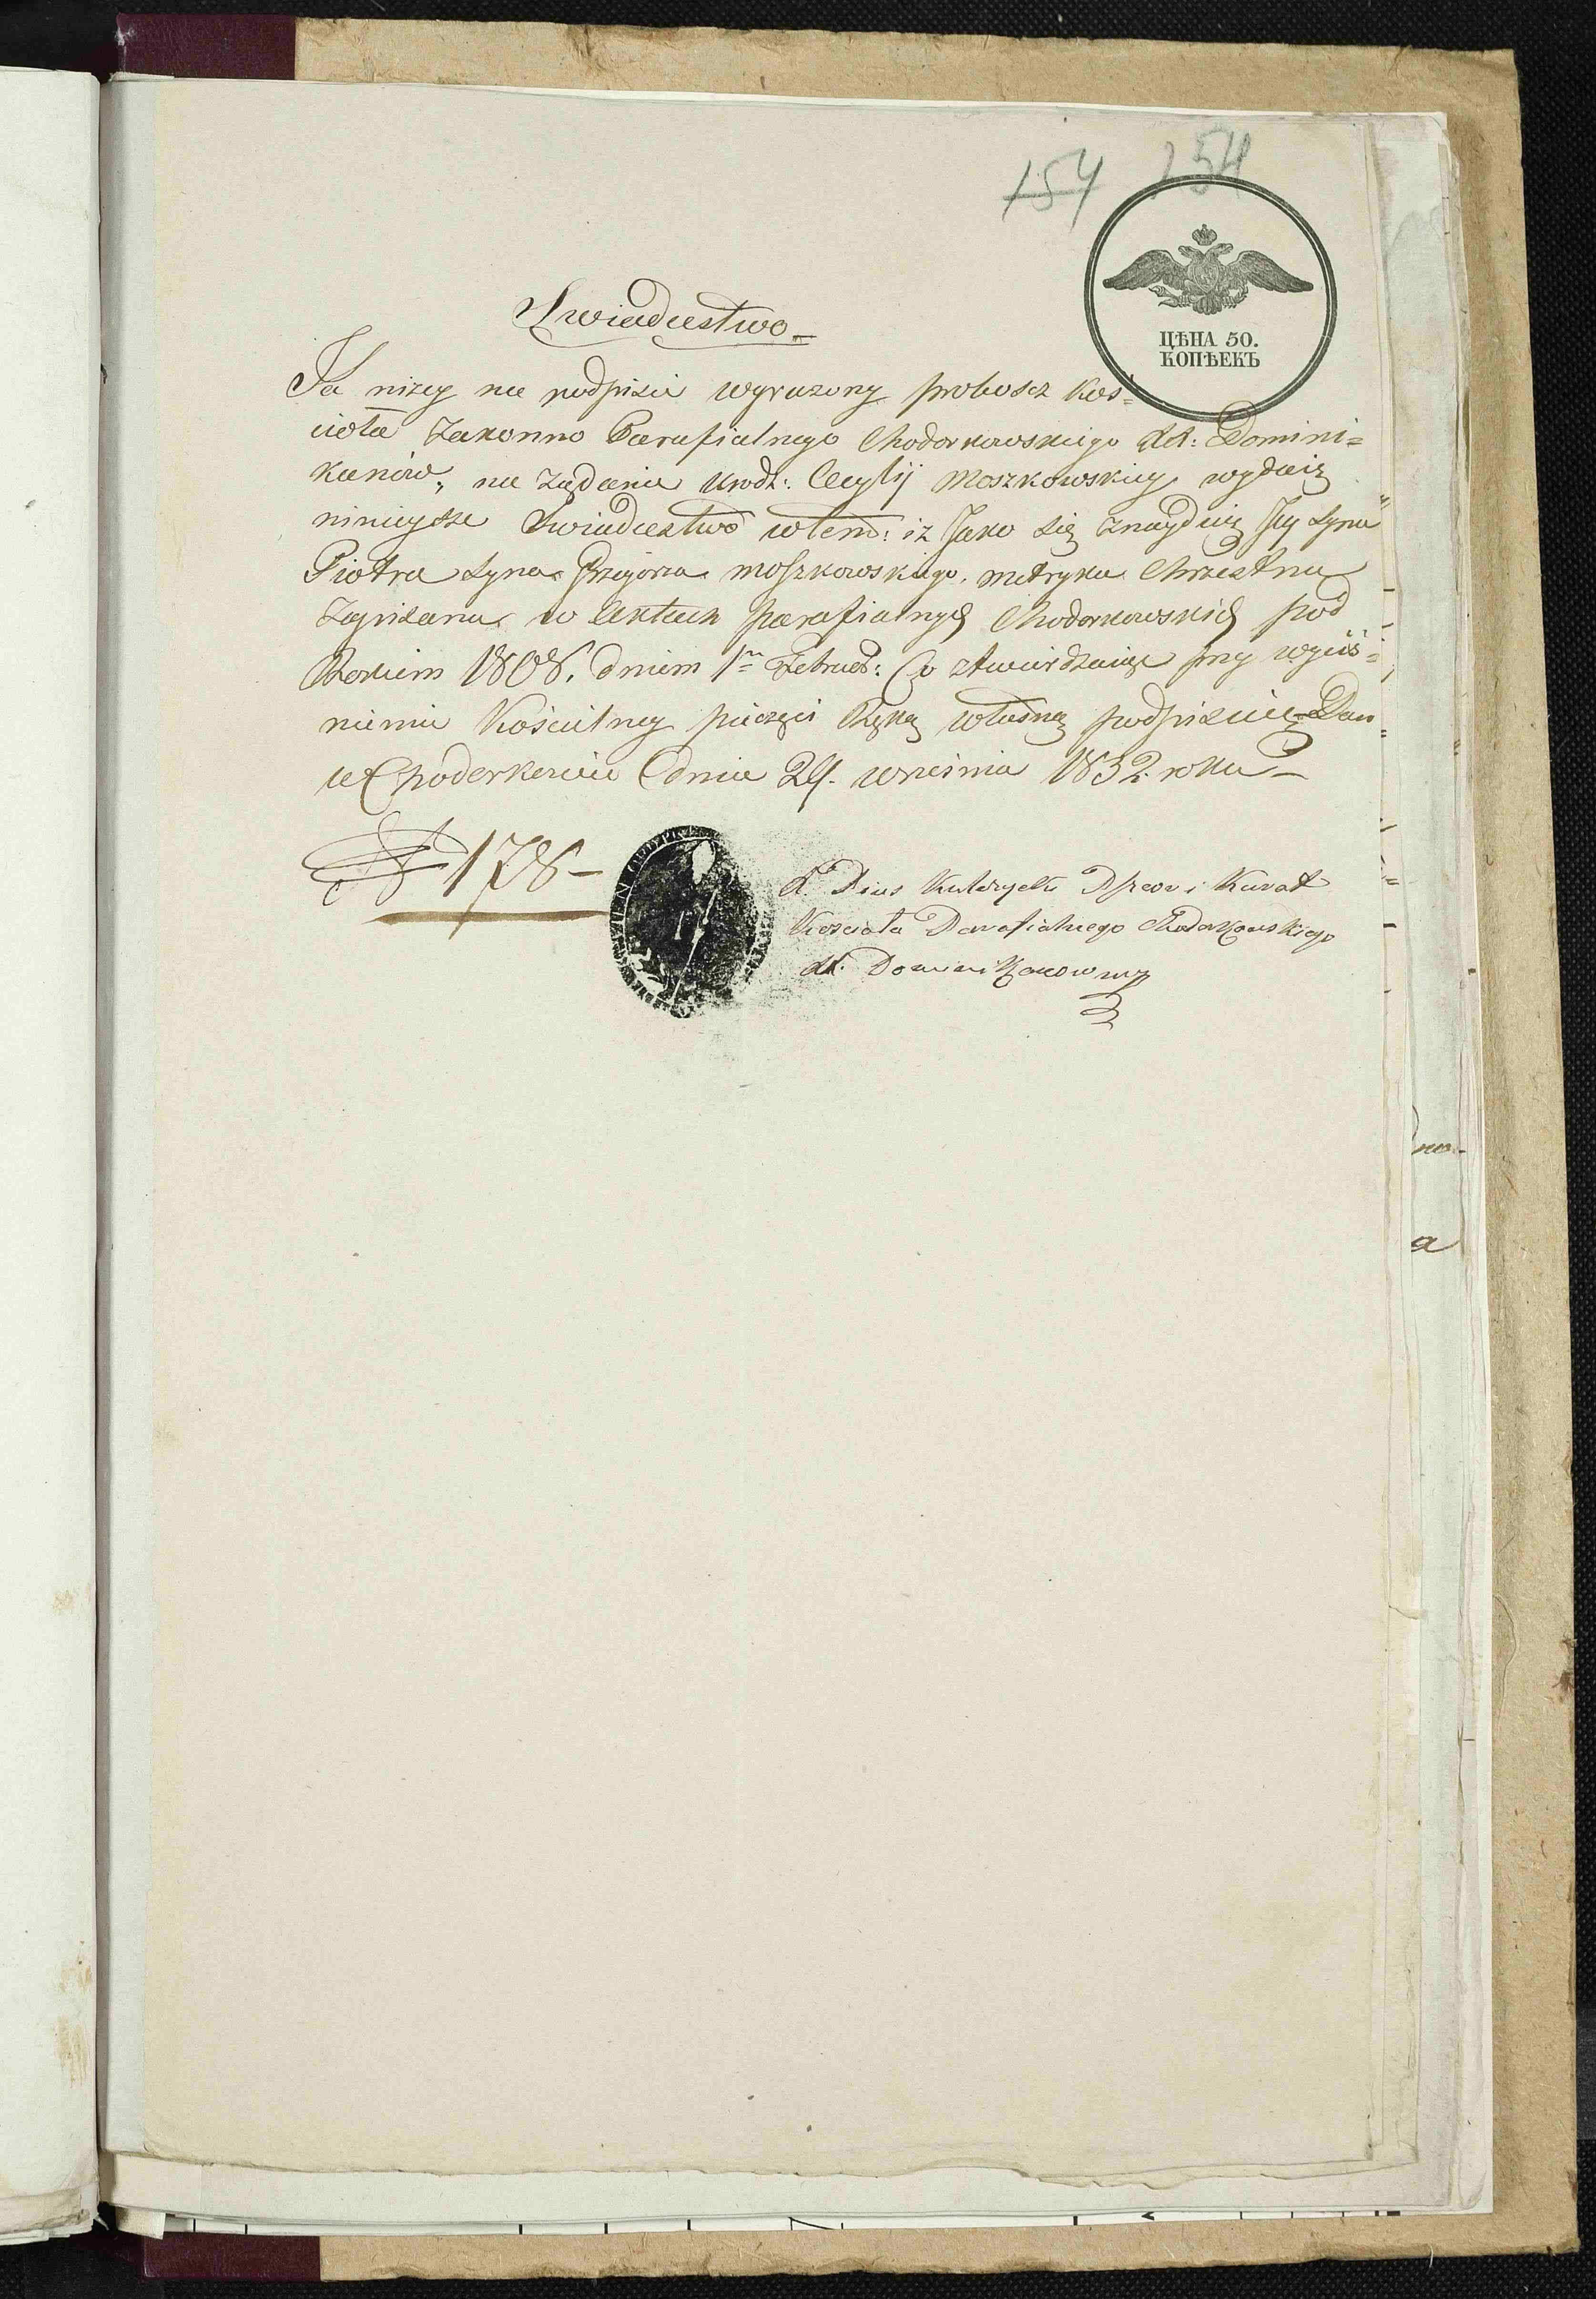 154 154
ЦѢНА 50.
КОПѢЕКЪ
Swiadectwo
Ja nizey na podpisie wyrazony proboscz Kos=
ciola Zakonno Parafialnego Chodorkowskiego XX: Domini=
kanów, na żądanie Urodz: Cecylij Moszkowskiey wydaię
ninieysze Swiadectwo wtem: iż Jako się znayduię Jey Syna
Piotra Syna Grzegorza Moszkowskiego, metryka Chrzestna
Zapisana w Aktach parafialnych Chodorkowskich pod
Rokiem 1808. dniem 1m Februar: Co ztwierdzaiąc przy wyciś=
nieniu Kościelney pieczęci Ręką własną podpisuię Dan
w Chodorkowie dnia 24. września 1832. roku
N 178
X. Pius Przeor i Kurat
Kosciola Parafialnego Chodorkowskiego
XX. Dominikanow mp
no-
a